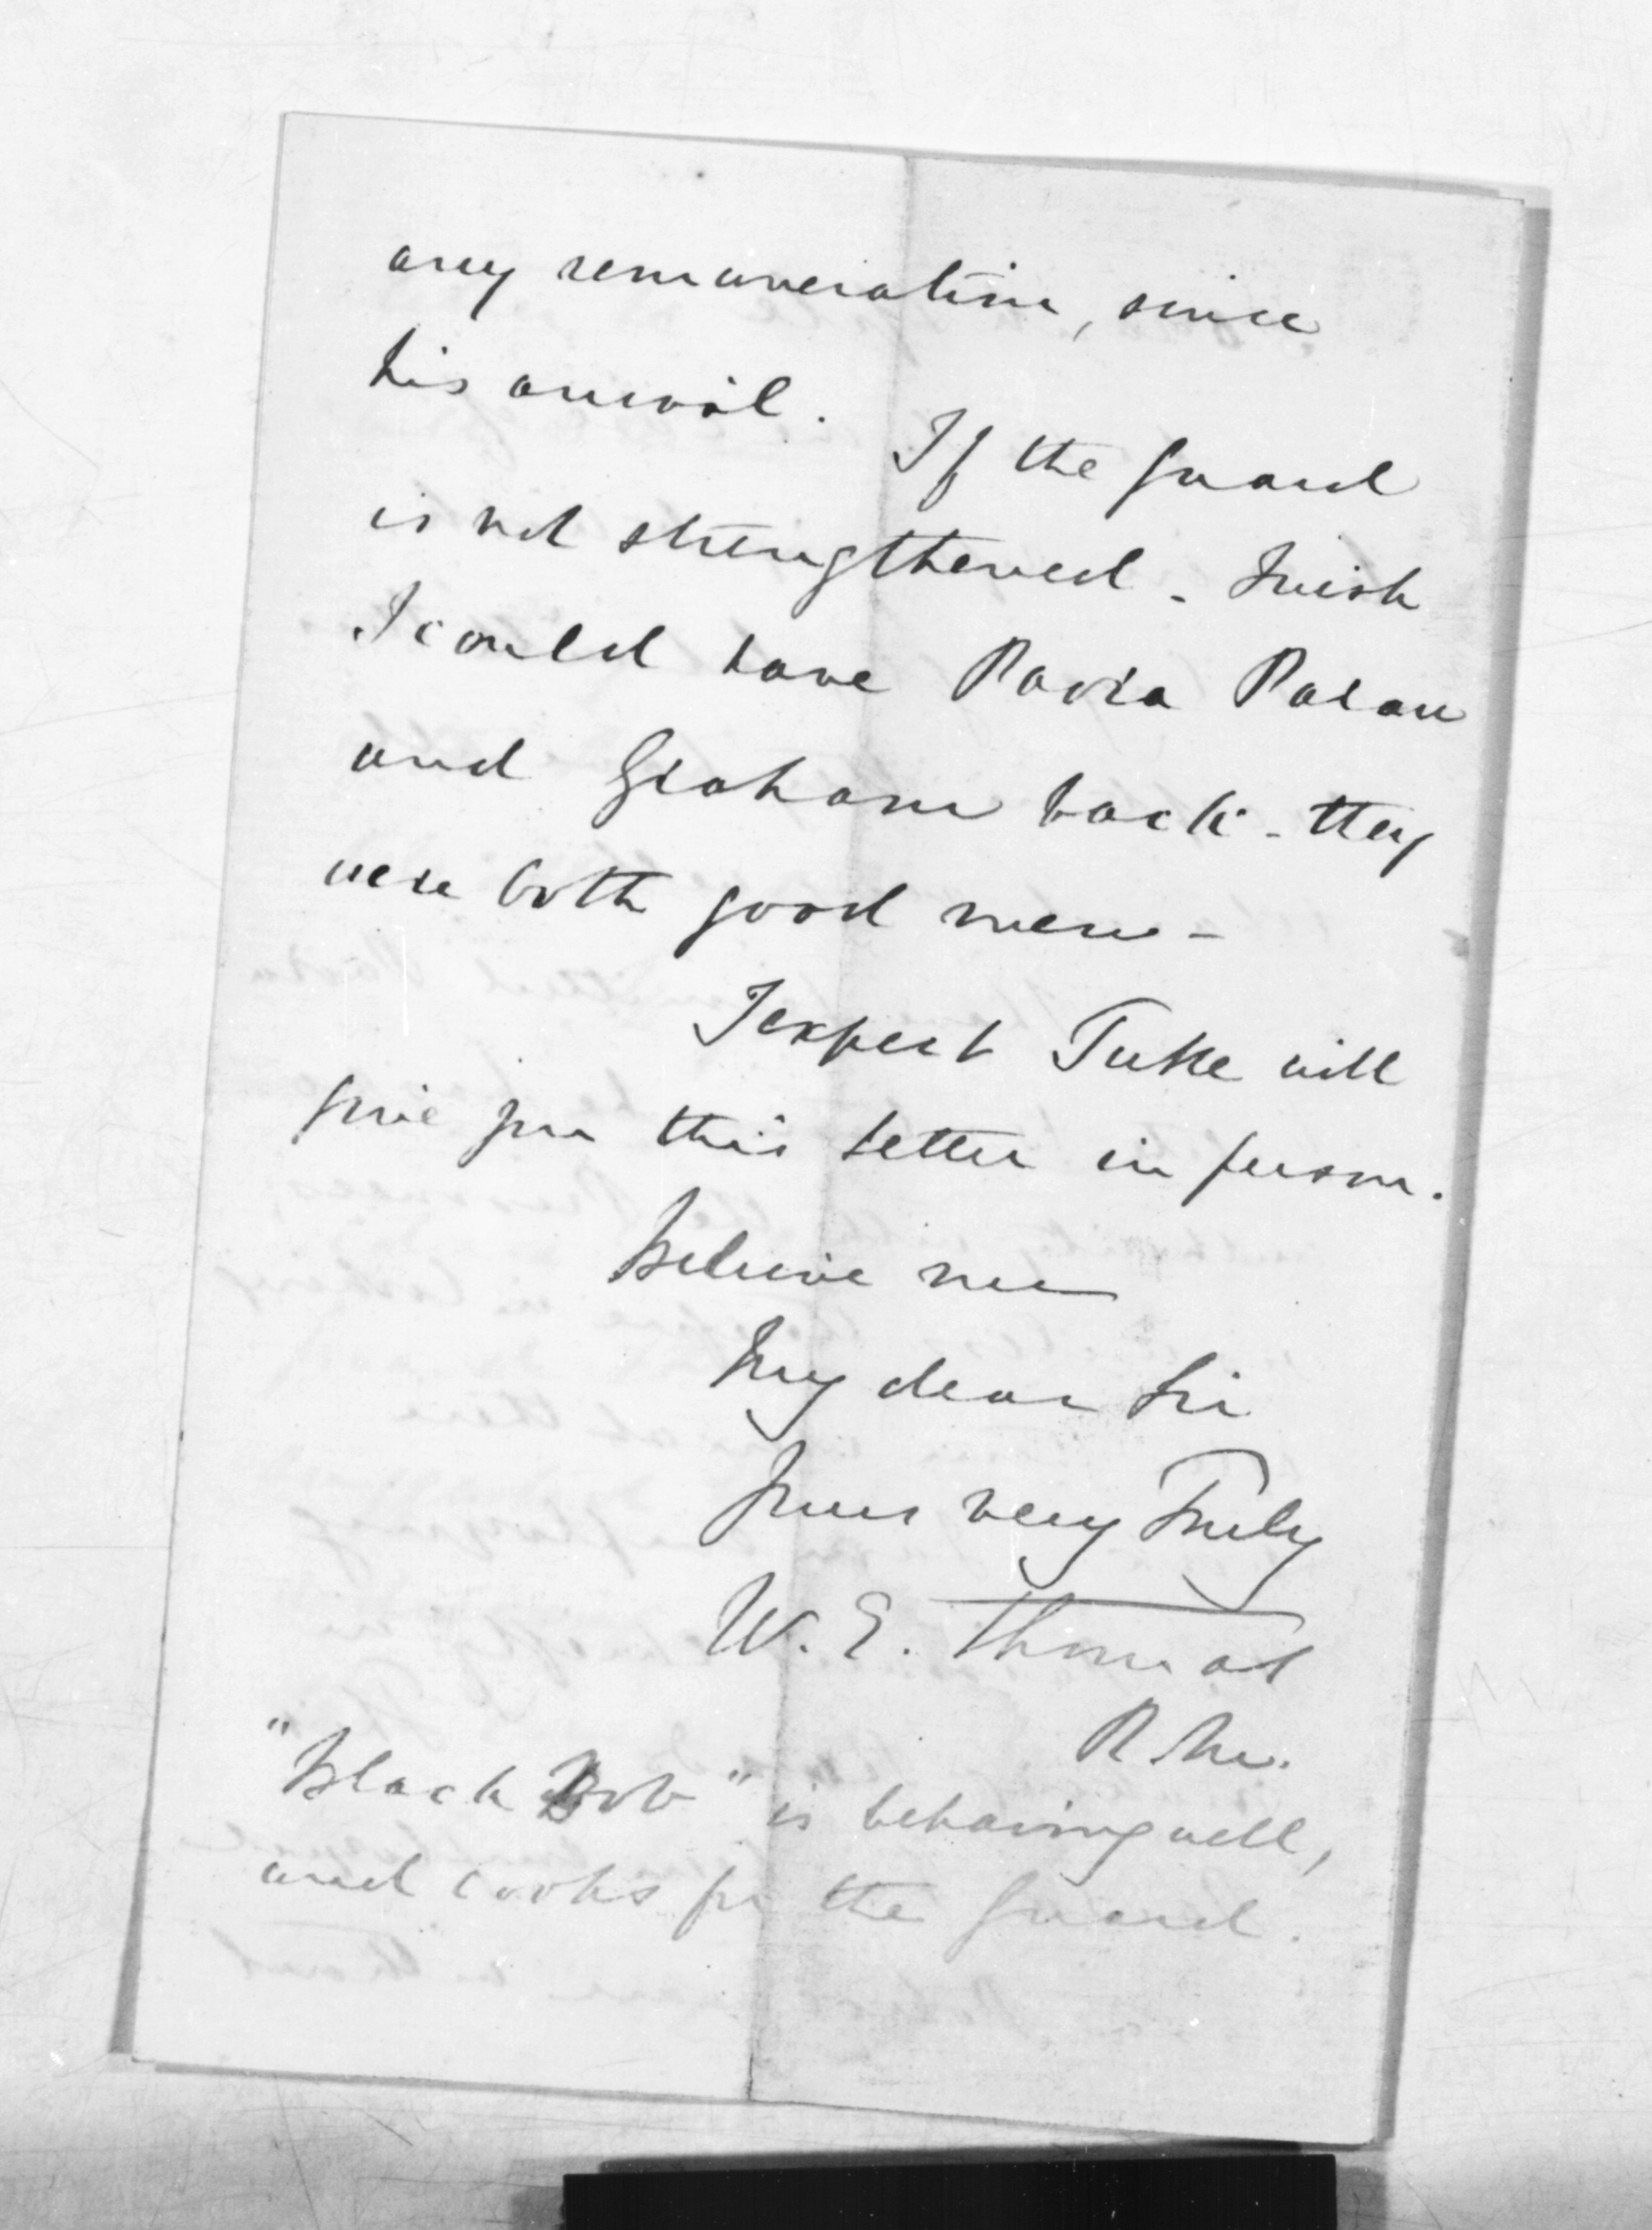 any remuneration, since
his arrival. If the guard
is not strengthened - I wish
I could have Pavia Patau
and Graham back - they
were both good men -
I expect Tuke will
give you this letter in person.
Believe me
My dear Sir
Yours very Truly
W. E. Thomas
R.M.
"Black Bob" is behaving well,
and cooks for the Guard.